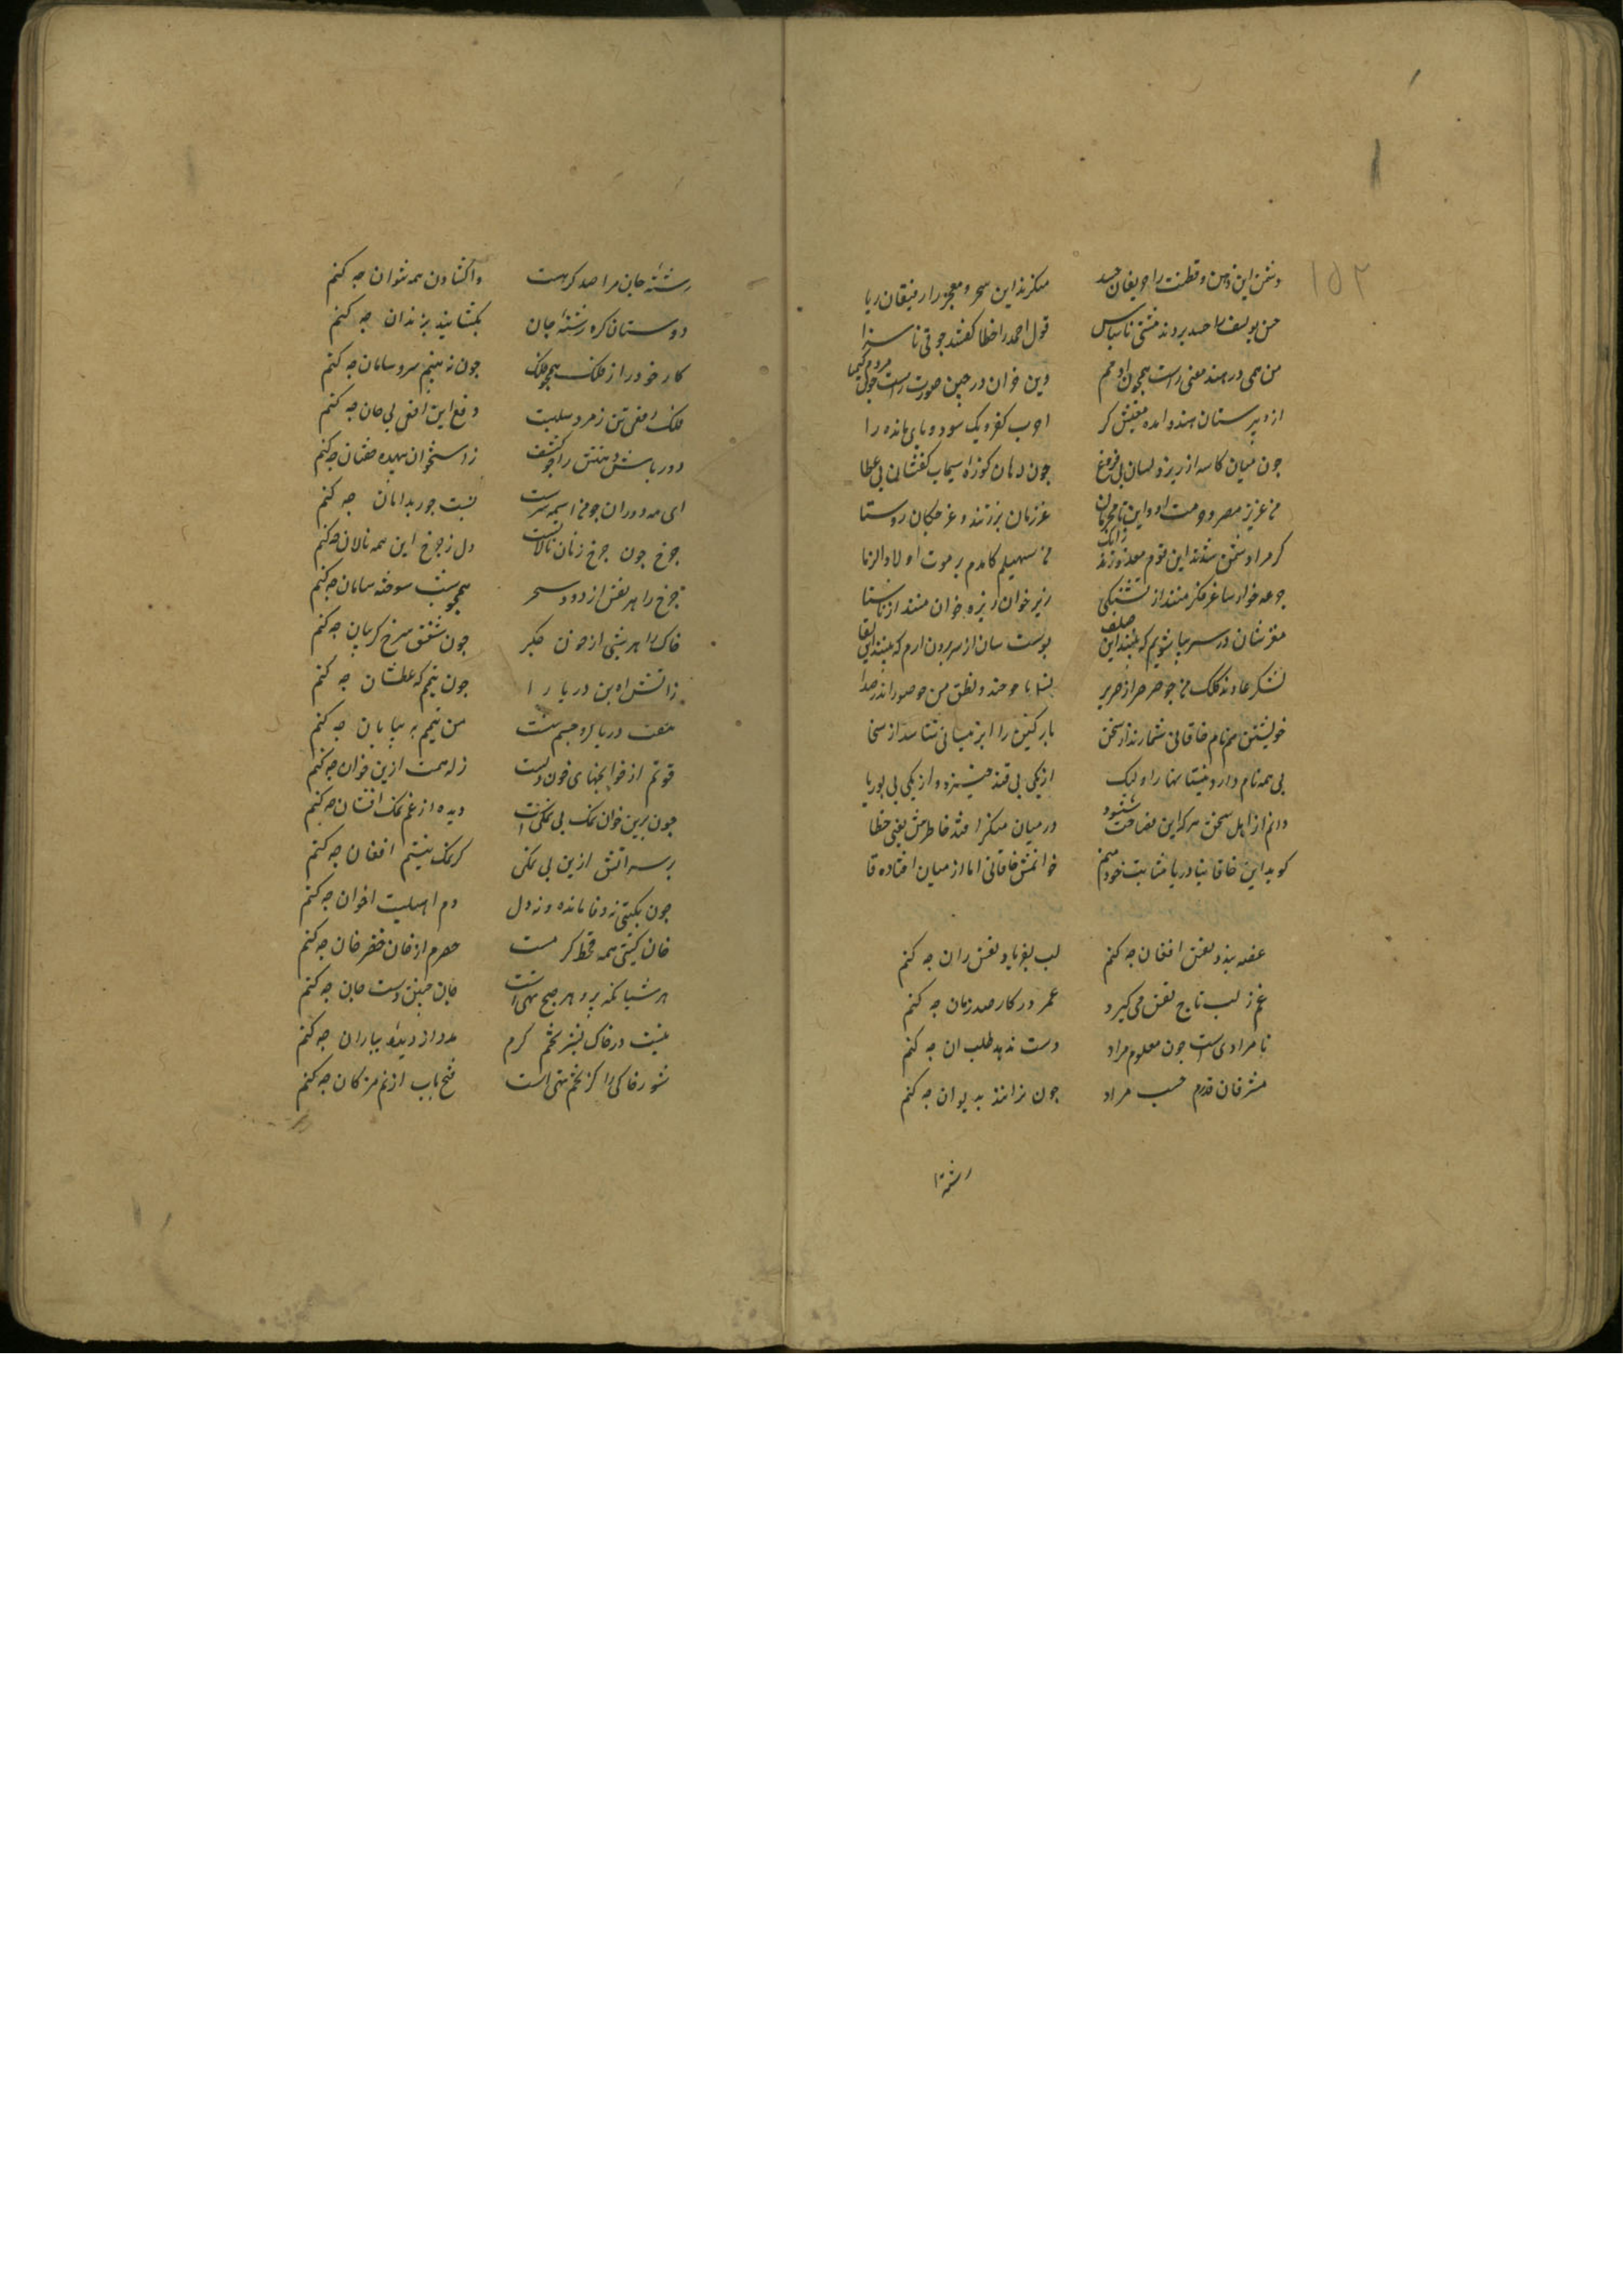 ۱۵۲
دشمن این ذهن و فطنت را حریفان حسد منکرند این سحر و معجز را رفیقان ریا
حسن یوسف را حسد بردند مشتی ناسپاس قول احمد را خطا گفتند جوقی ناسزا
من همی در هند معنی راست همچون آدمم وین خران در چین صورت راست چون مردم گیا
چون میان کاسه ارزیز دلشان بی فروغ چون دهان کوزه سیماب کفشان بی عطا
من عزیزم مصر حرمت را و این نامحرمان غر زنان برزنند و غرچگان روستا
گر مرا دشمن شدند این قوم معذورند زانک من سهیلم کامدم بر موت اولاد الزنا
جرعه خوار ساغر فکر منند از تشنگی ریزه خوار ریزه خوان منند از ناشتا
مغزشان در سر بیاشوبم که پیلند این صلف پوستشان از سر برون آرم که پیسند این لقا
لشکر عادند و کلک من چو صرصر از صریر نسل یاجوجند و نطق من چو صور اندر صدا
خویشتن هم نام خاقانی شمارند از سخن پارگین را ابر نیسانی شناسند از سخا
نی همه یک نام دارد نیستانها را ولیک از یکی نی قند خیزد وز یکی نی بوریا
دانم از اهل سخن هر که این فصاحت بشنود در میان منکر افتد خاطرش یعنی خطا
گوید این خاقانی دریا مثابت خود منم خوانمش خاقانی اما از میان افتاده قا
غصه بندد نفس افغان چه کنم لب بفریاد نفس ران چه کنم
غم ز لب باج نفس می گیرد عمر در کار صد زمان چه کنم
نامرادی است چون معلوم مراد دست ندهد طلب آن چه کنم
مشرفان قدرم حسب مراد چون نرانند بدیوان چه کنم
رشته
رشته جان مرا صد گرهست واکشادن همه نتوان چه کنم
دوستان گره رشته جان بگشایند بدندان چه کنم
کار خود را ز فلک همچو فلک چون نه بینم سر و سامان چه کنم
فلک افعی تن زمرد سلبیت دفع این افعی بی جان چه کنم
دور باش دهنش را چو کشف ز استخوان بیهده خفتان چه کنم
چرخ چون چرخ زنان نالانست دل ز چرخ این همه نالان چه کنم
چرخ را هر نفس از دود سحر همچو شب سوخته سامان چه کنم
خاک را هر شبی از خون جگر چون شفق سرخ گریبان چه کنم
ز آتش آه بن دریا را چون تیمم گه عطشان چه کنم
هفت دریا گرو چشم منست من تیمم به بیابان چه کنم
قوتم از خوانچهای خون دلست زله همت ازین خوان چه کنم
چون برین خوان نمک بی نمکی است دیده از غم نمک افشان چه کنم
بر سر آتش ازین بی نمکی گر نمک نیستم افغان چه کنم
چون بگیتی نه وفا مانده و نه دل دم اهلیت اخوان چه کنم
خان گیتی همه قحط کرم است حرم از خان خضرخان چه کنم
نیست در خاک بشر تخم کرم مدد از دیده بباران چه کنم
شوره خاکی را کز تخم تهی است فتح باب از نم مژگان چه کنم